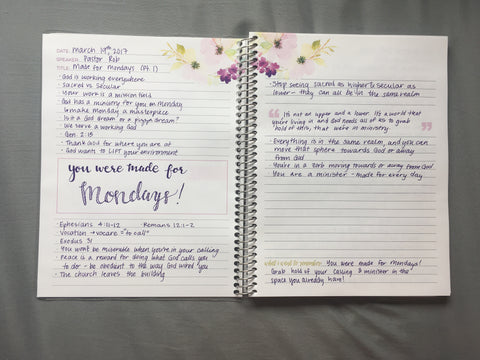 DATE: March 19th, 2017
SPEAKER: Pastor Rob
TITLE: Made for Mondays (Pt. 1)
· God is working everywhere
· Sacred vs. Secular
· Your work is a mission field
God has a ministry for you on Monday
· Make Monday a masterpiece
· Is it a God dream? or a pigeon dream?
· We serve a working God
- Gen. 2:15
· Thank God for where you are at
· God wants to LIFT your environment
you were made for
Mondays!
· Ephesians 4:11-12 · Romans 12:1-2
· Vocation → vocare = "to call"
· Exodus 31
· You won't be miserable when you're in your calling
· Peace is a reward for doing what God calls you
to do - be obedient to the way God wired you
· The church leaves the building
· Stop seeing sacred as higher & secular as
lower - they can all be in the same realm
"It's not an upper and a lower. It's a world that
you're living in and God needs all of us to grab
hold of this, that we're in ministry."
· Everything is in the same realm, and you can
move that sphere towards God or away
from God
· You're in a 24/7 moving towards or away from God
· You are a minister - made for every day
what i want to remember: You were made for Mondays!
Grab hold of your calling & minister in the
space you already have!